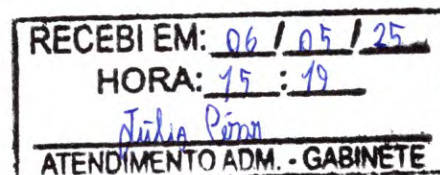 RECEBI EM: 06 / 05 / 25
HORA: 15 : 19
Júlia
ATENDIMENTO ADM. - GABINETE